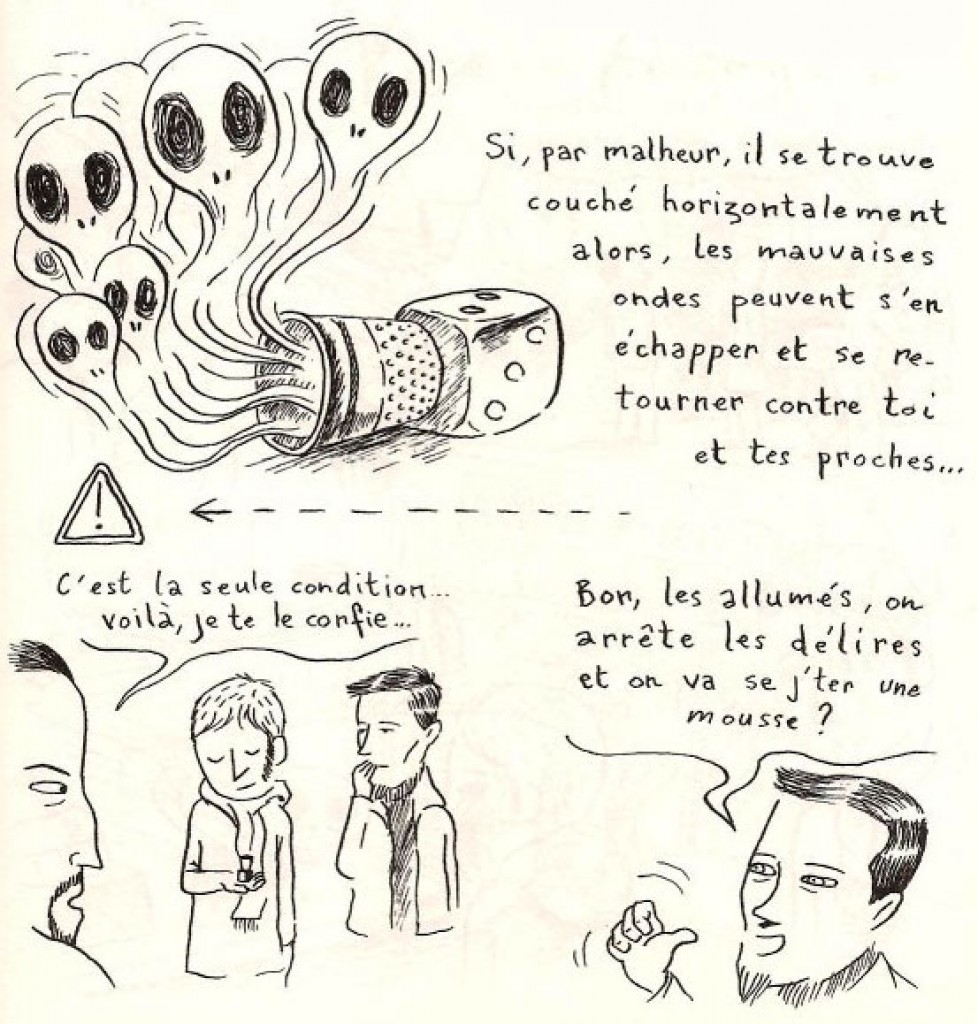 Si, par malheur, il se trouve
couché horizontalement
alors, les mauvaises
ondes peuvent s'en
échapper et se re-
tourner contre toi
et tes proches...
!
C'est la seule condition...
voilà, je te le confie...
Bon, les allumés, on
arrête les délires
et on va se j'ter une
mousse ?